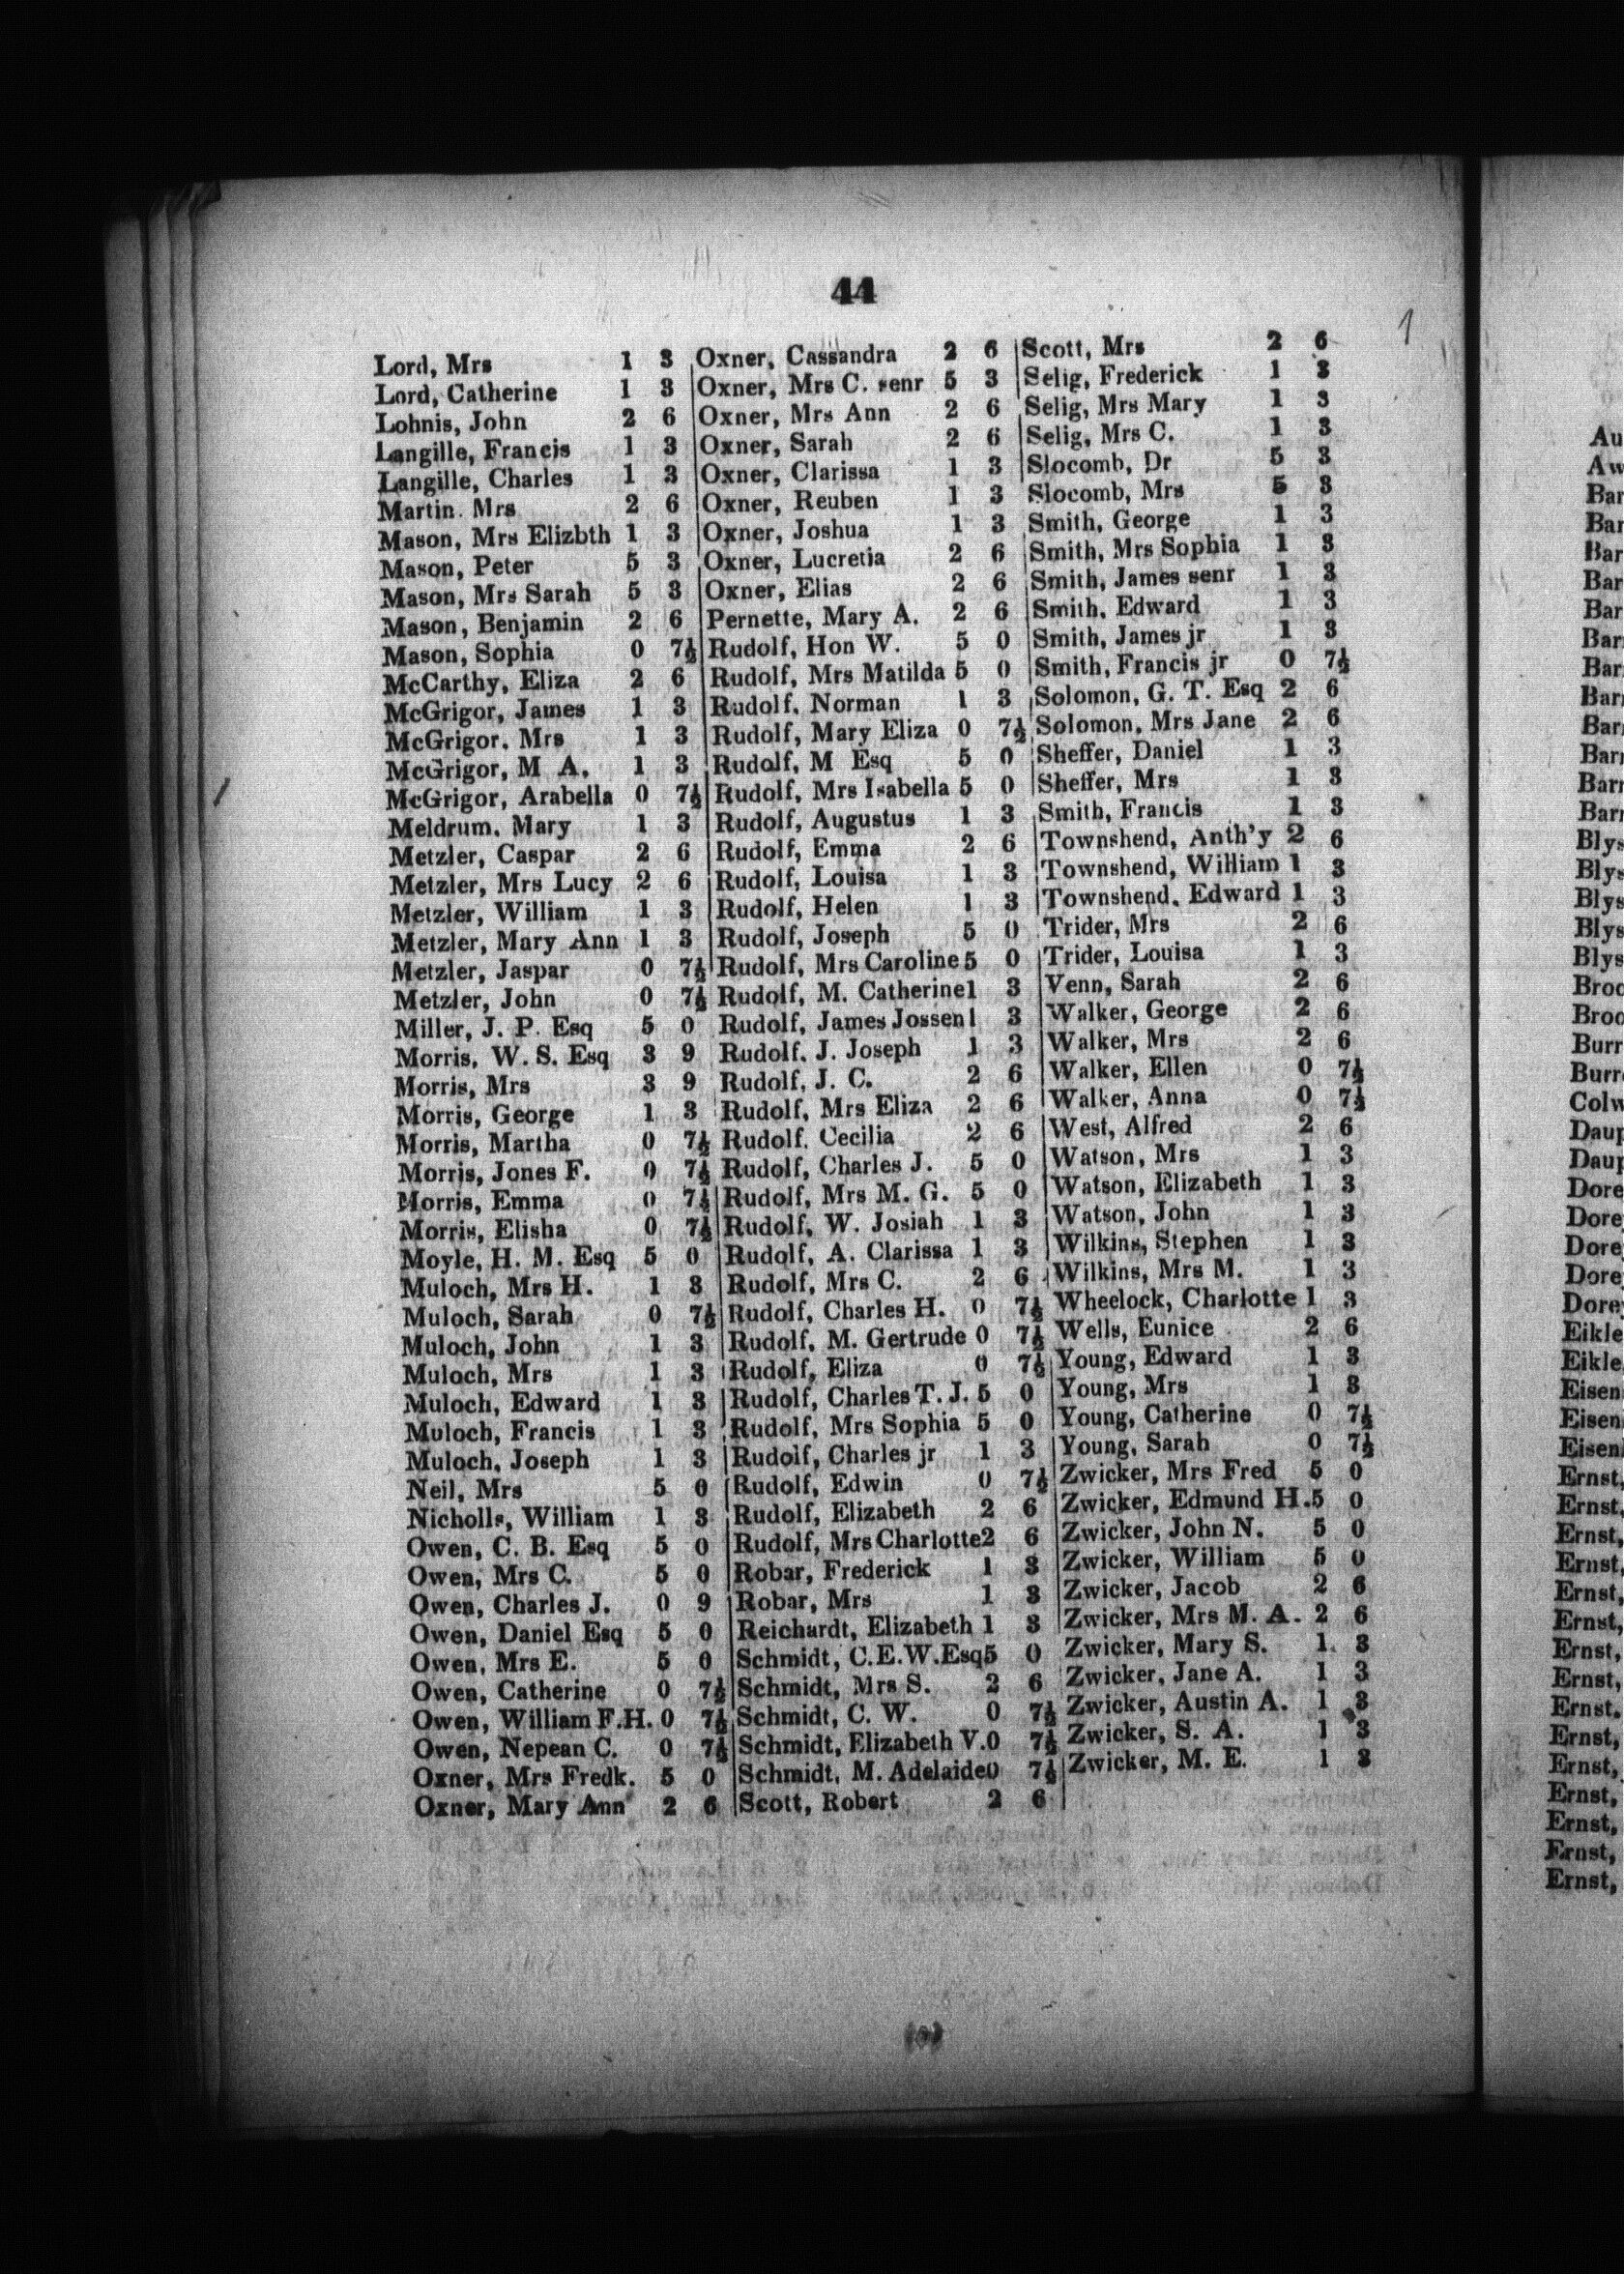 44
Lord, Mrs 1 3
Lord, Catherine 1 3
Lohnis, John 2 6
Langille, Francis 1 3
Langille, Charles 1 3
Martin. Mrs 2 6
Mason, Mrs Elizbth 1 3
Mason, Peter 5 3
Mason, Mrs Sarah 5 3
Mason, Benjamin 2 6
Mason, Sophia 0 7½
McCarthy, Eliza 2 6
McGrigor, James 1 3
McGrigor. Mrs 1 3
McGrigor, M A. 1 3
McGrigor, Arabella 0 7½
Meldrum. Mary 1 3
Metzler, Caspar 2 6
Metzler, Mrs Lucy 2 6
Metzler, William 1 3
Metzler, Mary Ann 1 3
Metzler, Jaspar 0 7½
Metzler, John 0 7½
Miller, J. P. Esq 5 0
Morris, W. S. Esq 3 9
Morris, Mrs 3 9
Morris, George 1 3
Morris, Martha 0 7½
Morris, Jones F. 0 7½
Morris, Emma 0 7½
Morris, Elisha 0 7½
Moyle, H. M. Esq 5 0
Muloch, Mrs H. 1 3
Muloch, Sarah 0 7½
Muloch, John 1 3
Muloch, Mrs 1 3
Muloch, Edward 1 3
Muloch, Francis 1 3
Muloch, Joseph 1 3
Neil, Mrs 5 0
Nicholls, William 1 3
Owen, C. B. Esq 5 0
Owen, Mrs C. 5 0
Owen, Charles J. 0 9
Owen, Daniel Esq 5 0
Owen, Mrs E. 5 0
Owen, Catherine 0 7½
Owen, William F.H. 0 7½
Owen, Nepean C. 0 7½
Oxner, Mrs Fredk. 5 0
Oxner, Mary Ann 2 6
Oxner, Cassandra 2 6
Oxner, Mrs C. senr 5 3
Oxner, Mrs Ann 2 6
Oxner, Sarah 2 6
Oxner, Clarissa 1 3
Oxner, Reuben 1 3
Oxner, Joshua 1 3
Oxner, Lucretia 2 6
Oxner, Elias 2 6
Pernette, Mary A. 2 6
Rudolf, Hon W. 5 0
Rudolf, Mrs Matilda 5 0
Rudolf. Norman 1 3
Rudolf, Mary Eliza 0 7½
Rudolf, M Esq 5 0
Rudolf, Mrs Isabella 5 0
Rudolf, Augustus 1 3
Rudolf, Emma 2 6
Rudolf, Louisa 1 3
Rudolf, Helen 1 3
Rudolf, Joseph 5 0
Rudolf, Mrs Caroline 5 0
Rudolf, M. Catherine 1 3
Rudolf, James Jossen 1 3
Rudolf. J. Joseph 1 3
Rudolf, J. C. 2 6
Rudolf, Mrs Eliza 2 6
Rudolf. Cecilia 2 6
Rudolf, Charles J. 5 0
Rudolf, Mrs M. G. 5 0
Rudolf, W. Josiah 1 3
Rudolf, A. Clarissa 1 3
Rudolf, Mrs C. 2 6
Rudolf, Charles H. 0 7½
Rudolf, M. Gertrude 0 7½
Rudolf, Eliza 0 7½
Rudolf, Charles T. J. 5 0
Rudolf, Mrs Sophia 5 0
Rudolf, Charles jr 1 3
Rudolf, Edwin 0 7½
Rudolf, Elizabeth 2 6
Rudolf, Mrs Charlotte 2 6
Robar, Frederick 1 3
Robar, Mrs 1 3
Reichardt, Elizabeth 1 3
Schmidt, C.E.W.Esq 5 0
Schmidt, Mrs S. 2 6
Schmidt, C. W. 0 7½
Schmidt, Elizabeth V. 0 7½
Schmidt, M. Adelaide 0 7½
Scott, Robert 2 6
Scott, Mrs 2 6
Selig, Frederick 1 3
Selig, Mrs Mary 1 3
Selig, Mrs C. 1 3
Slocomb, Dr 5 3
Slocomb, Mrs 5 3
Smith, George 1 3
Smith, Mrs Sophia 1 3
Smith, James senr 1 3
Smith, Edward 1 3
Smith, James jr 1 3
Smith, Francis jr 0 7½
Solomon, G. T. Esq 2 6
Solomon, Mrs Jane 2 6
Sheffer, Daniel 1 3
Sheffer, Mrs 1 3
Smith, Francis 1 3
Townshend, Anth'y 2 6
Townshend, William 1 3
Townshend. Edward 1 3
Trider, Mrs 2 6
Trider, Louisa 1 3
Venn, Sarah 2 6
Walker, George 2 6
Walker, Mrs 2 6
Walker, Ellen 0 7½
Walker, Anna 0 7½
West, Alfred 2 6
Watson, Mrs 1 3
Watson, Elizabeth 1 3
Watson, John 1 3
Wilkins, Stephen 1 3
Wilkins, Mrs M. 1 3
Wheelock, Charlotte 1 3
Wells, Eunice 2 6
Young, Edward 1 3
Young, Mrs 1 3
Young, Catherine 0 7½
Young, Sarah 0 7½
Zwicker, Mrs Fred 5 0
Zwicker, Edmund H. 5 0
Zwicker, John N. 5 0
Zwicker, William 5 0
Zwicker, Jacob 2 6
Zwicker, Mrs M. A. 2 6
Zwicker, Mary S. 1 3
Zwicker, Jane A. 1 3
Zwicker, Austin A. 1 3
Zwicker, S. A. 1 3
Zwicker, M. E. 1 3
Au
Aw
Bar
Bar
Bar
Bar
Bar
Bar
Bar
Bar
Bar
Barr
Barr
Barr
Blys
Blys
Blys
Blys
Blys
Broo
Broo
Burr
Burr
Colw
Daup
Daup
Dore
Dore
Dore
Dore
Dore
Eikle
Eikle
Eisen
Eisen
Eisen
Ernst,
Ernst,
Ernst,
Ernst,
Ernst,
Ernst,
Ernst,
Ernst,
Ernst.
Ernst,
Ernst,
Ernst,
Ernst,
Ernst,
Ernst,